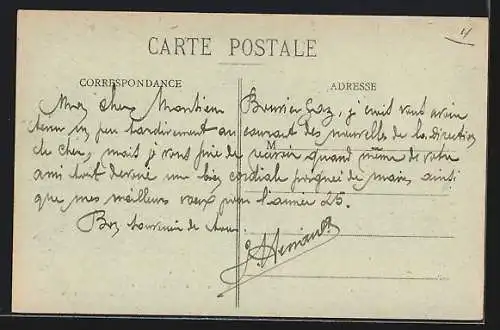 4
CARTE POSTALE
CORRESPONDANCE
ADRESSE
Mon cher Monsieur j'ai vous avoir
tenu un peu tardivement au courant des nouvelle de la Direction
M
du Cher, mais je vous prie de recevoir quand même de votre
ami tout une bien cordiale poignée de main, ainsi
que mes meilleurs vœux pour l'année 25.
Bon souvenir de